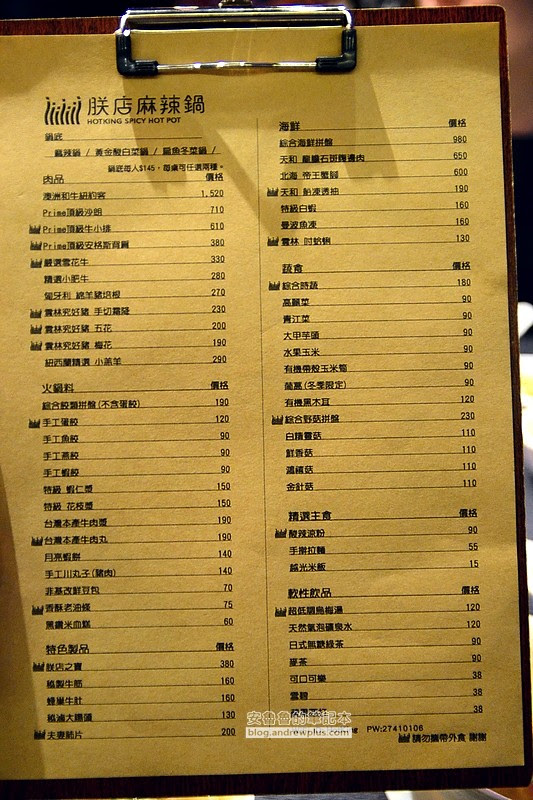 朕店麻辣鍋
HOTKING SPICY HOT POT
鍋底
麻辣鍋 / 黃金酸白菜鍋 / 扁魚冬菜鍋 /
鍋底每人$145,每桌可任選兩種。
肉品 價格
澳洲和牛紐約客 1,520
Prime頂級沙朗 710
Prime頂級牛小排 610
Prime頂級安格斯背肩 380
嚴選雪花牛 330
精選小肥牛 280
匈牙利 綿羊豬培根 270
雲林究好豬 手切霜降 230
雲林究好豬 五花 200
雲林究好豬 梅花 190
紐西蘭精選 小羔羊 290
火鍋料 價格
綜合餃類拼盤(不含蛋餃) 190
手工蛋餃 120
手工魚餃 90
手工燕餃 90
手工蝦餃 90
特級 蝦仁漿 150
特級 花枝漿 150
台灣本產牛肉漿 190
台灣本產牛肉丸 190
月亮蝦餅 140
手工川丸子(豬肉) 140
非基改鮮豆包 70
香酥老油條 75
黑鑽米血糕 60
特色製品 價格
朕店之寶 380
秘製牛筋 160
蜂巢牛肚 160
秘滷大腸頭 130
夫妻肺片 200
海鮮 價格
綜合海鮮拼盤 980
天和 龍膽石斑腹邊肉 650
北海 帝王蟹腳 600
天和 船凍透抽 190
特級白蝦 160
曼波魚凍 160
雲林 吋蛤蜊 130
蔬食 價格
綜合時蔬 180
高麗菜 90
青江菜 90
大甲芋頭 90
水果玉米 90
有機帶殼玉米筍 90
茼蒿(冬季限定) 90
有機黑木耳 120
綜合野菇拼盤 230
白精靈菇 110
鮮香菇 110
鴻禧菇 110
金針菇 110
精選主食 價格
酸辣涼粉 90
手擀拉麵 55
越光米飯 15
軟性飲品 價格
超低糖烏梅湯 120
天然氣泡礦泉水 120
日式無糖綠茶 90
麥茶 90
可口可樂 38
雪碧 38
38
PW:27410106
請勿攜帶外食 謝謝
安魯魯的筆記本
blog.andrewplus.com